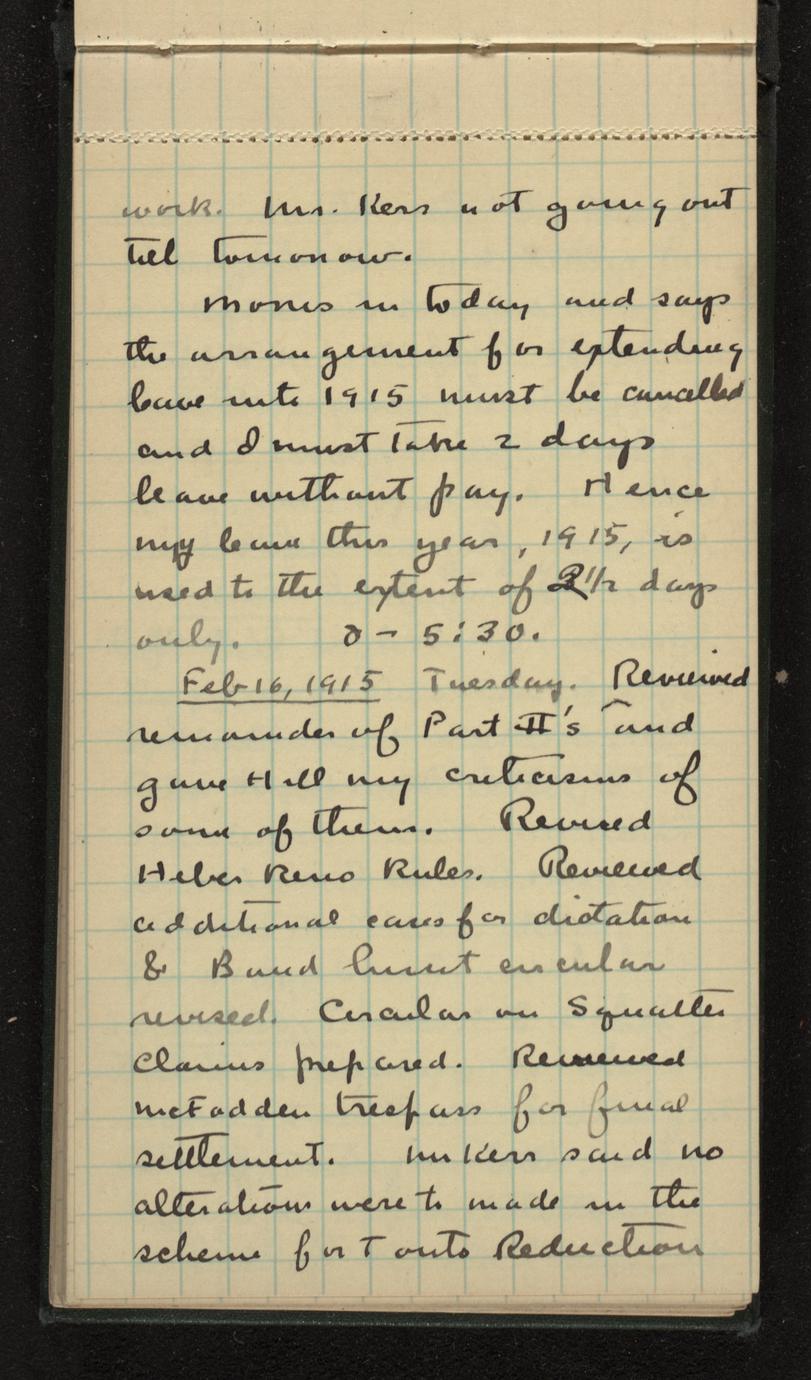 work. Mr. Kerr not going out
till tomorrow.
Morris in today and says
the arrangement for extending
leave into 1915 must be cancelled
and I must take 2 days
leave without pay. Hence
my leave this year, 1915, is
used to the extent of 2 1/2 days
only. 8 - 5:30.
Feb 16, 1915 Tuesday. Reviewed
remainder of Part II's ^ and
gave Hill my criticisms of
some of them. Revised
Heber Reno Rules. Reviewed
additional cases for dictation
& Band limit circular
revised. Circular on Squatter
Claims prepared. Reviewed
McFadden trespass for final
settlement. Mr Kerr said no
alterations were to made in the
scheme for Tonto Reduction